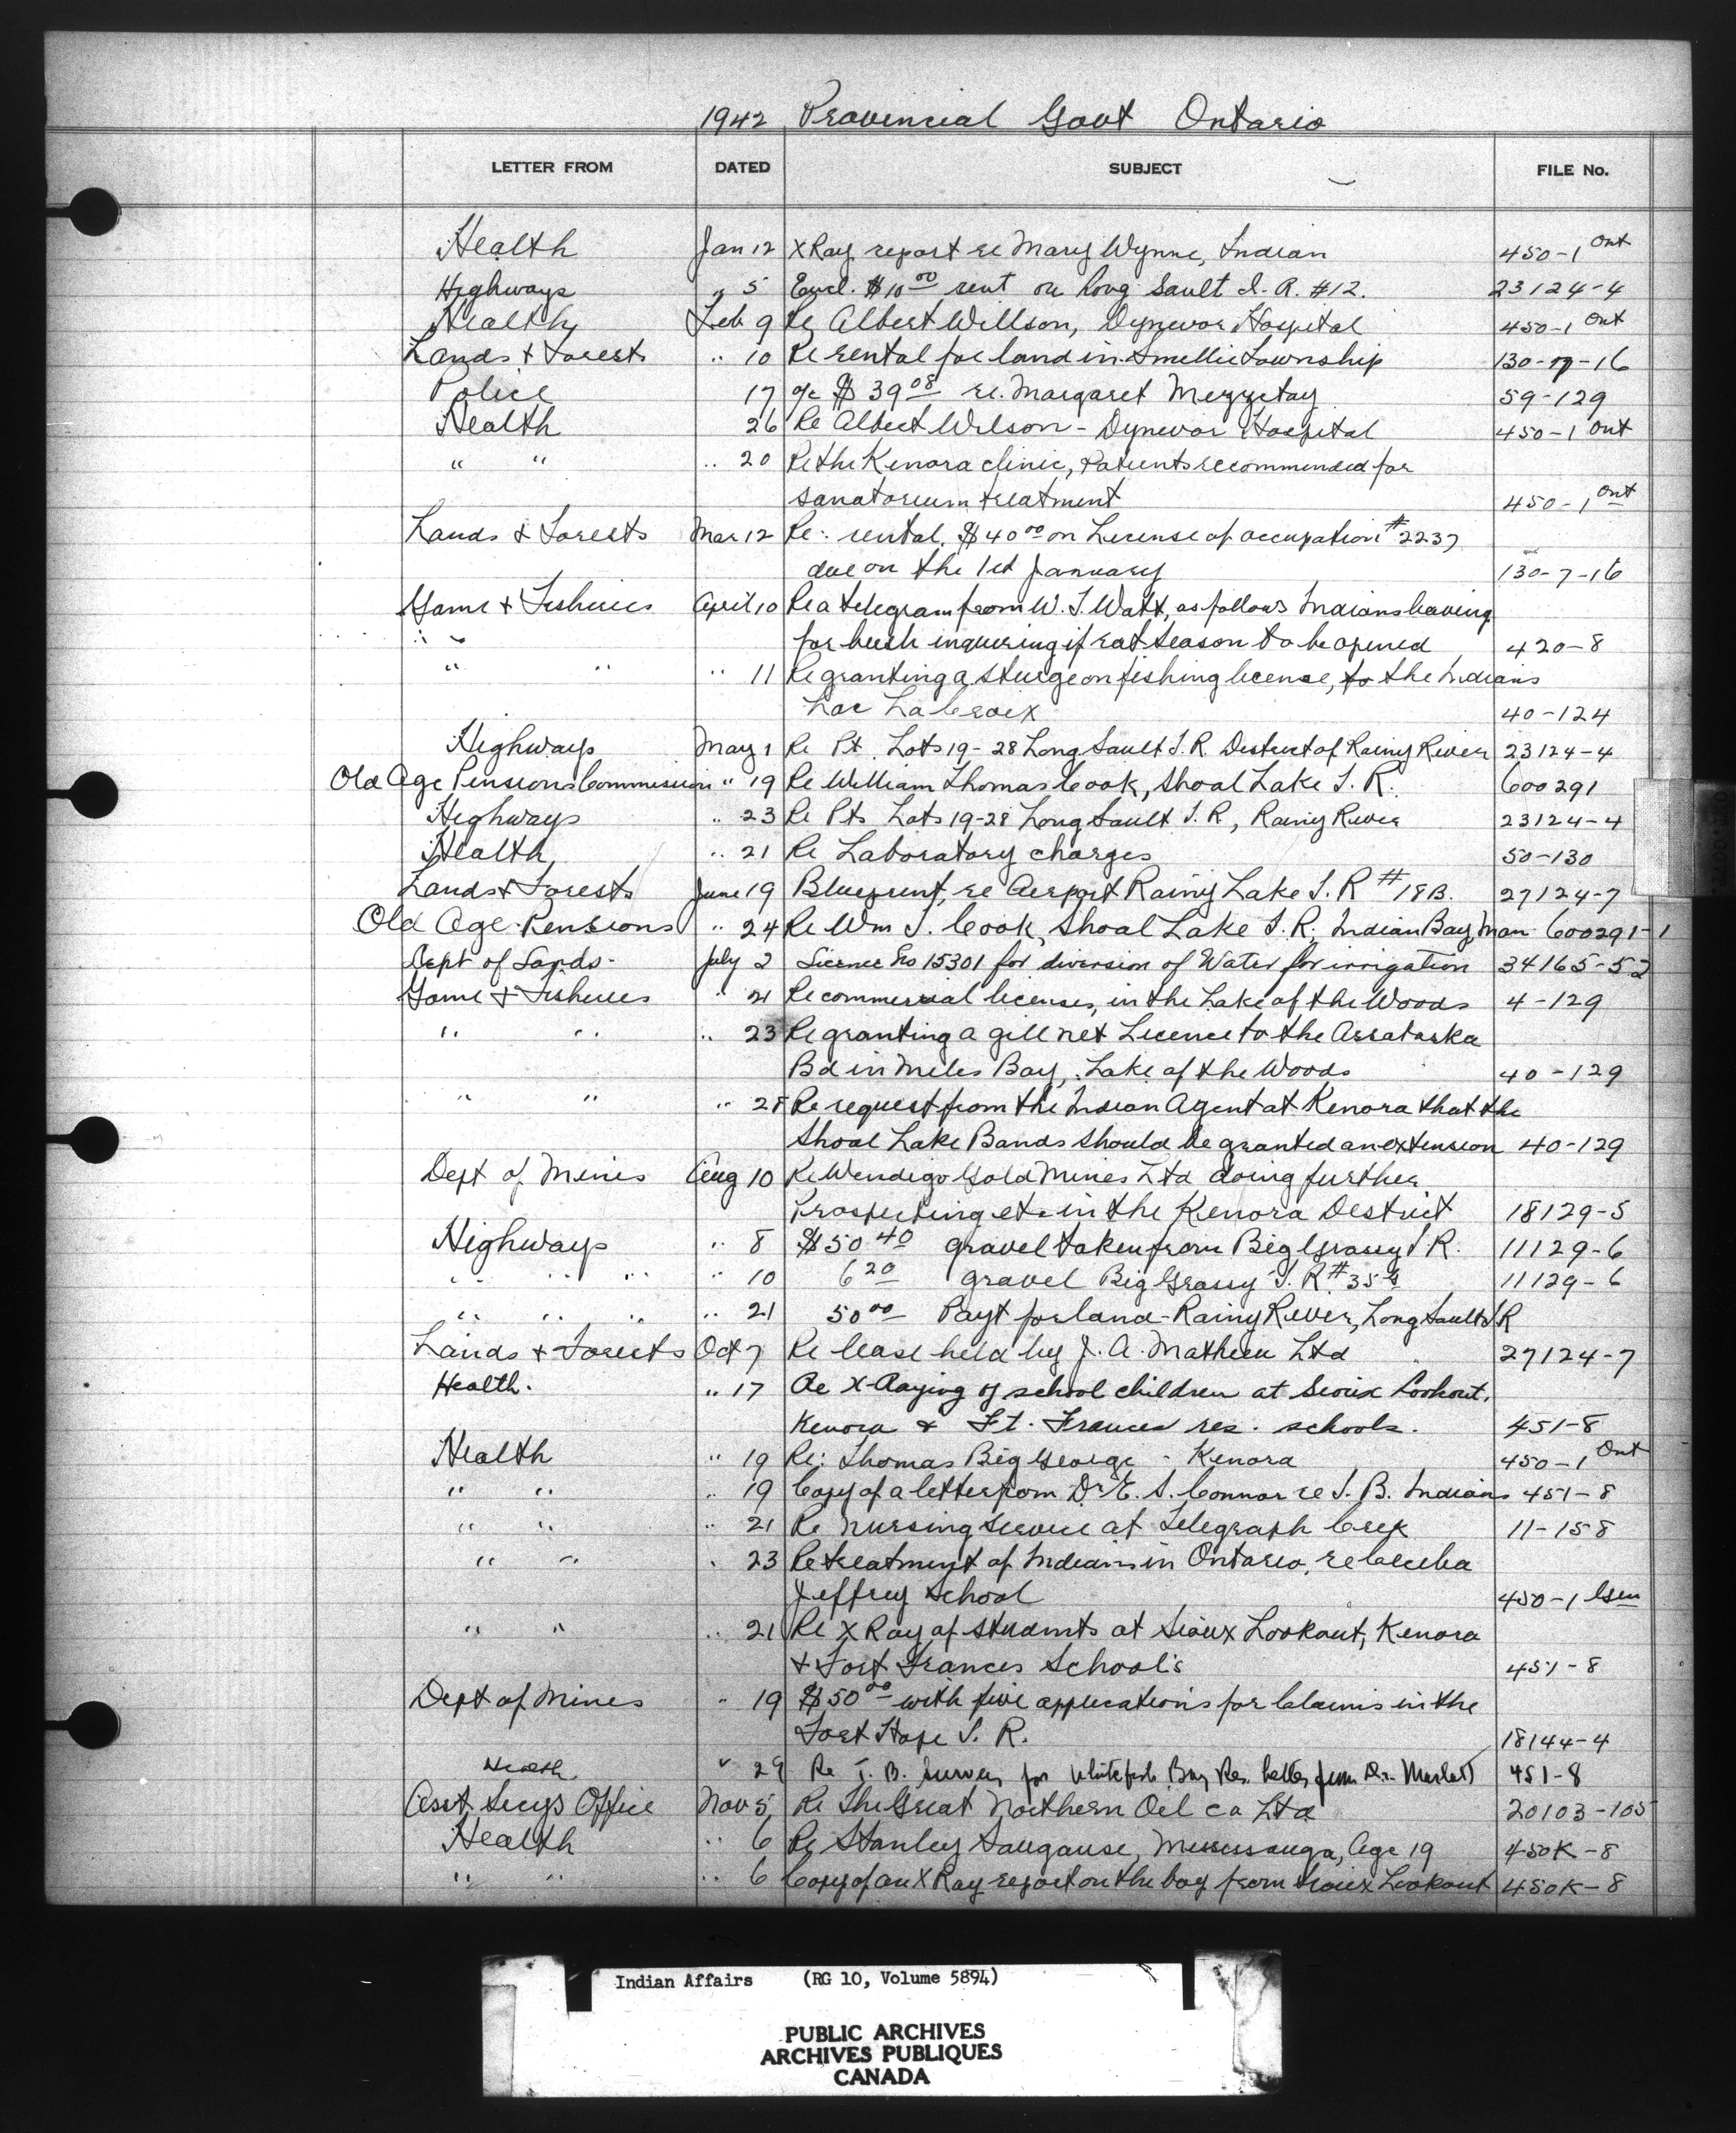 1942 Provincial Govt Ontario
LETTER FROM DATED SUBJECT FILE No.
Health Jan 12 X Ray report re Mary Wynne, Indian 450-1 Ont
Highways " 5 Encl. $10.00 rent on Long Sault I.R. #12. 23124-4
Health Feb 9 Re Albert Willson, Dynevor Hospital 450-1 Ont
Lands & Forests " 10 Re rental for land in Smellie Township 130-7-16
Police 17 a/c $39.08 re. Margaret 59-129
Health 26 Re Albert Wilson - Dynevor Hospital 450-1 Ont
" " " 20 Re the Kenora clinic, Patients recommended for
sanatorium treatment 450-1 Ont
Lands & Forests Mar 12 Re: rental, $40.00 on License of occupation #2237
due on the 1st January 130-7-16
Game & Fisheries April 10 Re a telegram from W. J. Watt, as follows Indians leaving
" " for bush inquiring if rat season to be opened 420-8
" " " 11 Re granting a sturgeon fishing license, to the Indians
Lac La Croix 40-124
Highways May 1 Re Pt. Lots 19-28 Long Sault I.R. District of Rainy River 23124-4
Old Age Pensions Commission " 19 Re William Thomas Cook, Shoal Lake I.R. 600291
Highways " 23 Re Pts Lots 19-28 Long Sault I.R, Rainy River 23124-4
Health " 21 Re Laboratory charges 50-130
Lands & Forests June 19 Blueprint, re Airport Rainy Lake I.R #18B. 27124-7
Old Age Pensions " 24 Re Wm T. Cook, Shoal Lake I.R; Indian Bay, Man 600291-1
Dept of Lands - July 2 Licence No 15301 for diversion of Water for irrigation 34165-52
Game & Fisheries " 21 Re commercial licenses, in the Lake of the Woods 4-129
" " " 23 Re granting a gill net Licence to the Assabaska
Bd in Miles Bay, Lake of the Woods 40-129
" " " 28 Re request from the Indian Agent at Kenora that the
Shoal Lake Bands should be granted an extension 40-129
Dept of Mines Aug 10 Re Wendigo Gold Mines Ltd doing further
Prospecting etc in the Kenora District 18129-5
Highways " 8 $50.40 gravel taken from Big Grassy I R. 11129-6
" " " " 10 6.20 gravel Big Grassy I. R #35G 11129-6
" " " " 21 50.00 Payt for land - Rainy River, Long Sault I R
Lands & Forests Oct 7 Re lease held by J. A. Mathieu Ltd 27124-7
Health. " 17 Re X-Raying of school children at Sioux Lookout,
Kenora & Ft. Frances res. schools. 451-8
Health " 19 Re: Thomas Big George - Kenora 450-1 Ont
" " " 19 Copy of a letter from Dr E. S. Connor re T. B. Indians 451-8
" " " 21 Re Nursing Service at Telegraph Creek 11-158
" " " 23 Re treatment of Indians in Ontario, re Cecilia
Jeffrey School 450-1 Gen
" " " 21 Re X Ray of students at Sioux Lookout, Kenora
& Fort Frances School's 451-8
Dept of Mines " 19 $50.00 with five applications for Claims in the
Fort Hope I. R. 18144-4
Health " 29 Re T. B. survey for Whitefish Bay Res. letter from Dr. 451-8
Asst. Secys Office Nov 5, Re The Great Northern Oil co Ltd 20103-105
Health " 6 Re Stanley Saugause, Mississauga, Age 19 450K-8
" " " 6 Copy of an X Ray report on the boy from Sioux Lookout 450K-8
Indian Affairs (RG 10, Volume 5894)
PUBLIC ARCHIVES
ARCHIVES PUBLIQUES
CANADA